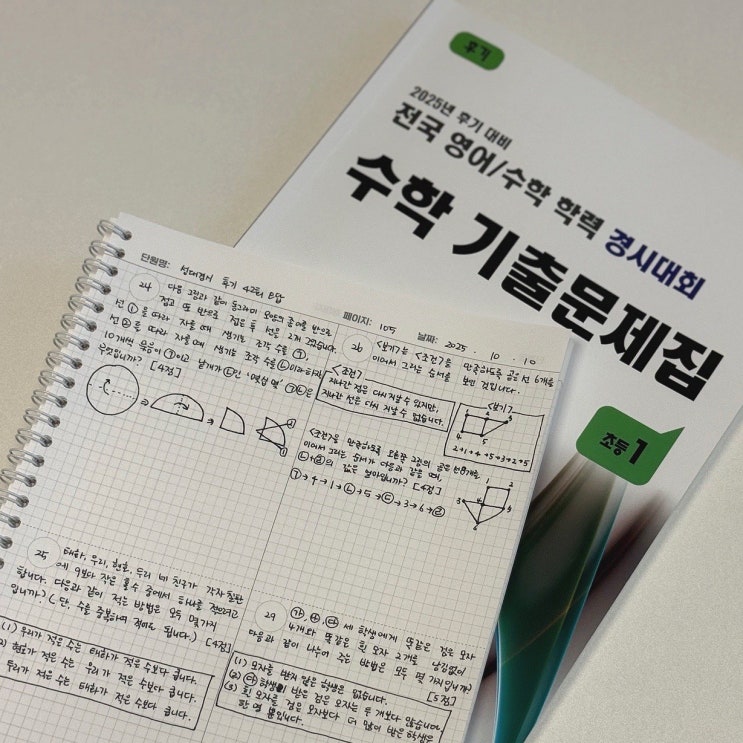 후기
2025년 후기 대비
전국 영어/수학 학력 경시대회
수학 기출문제집
초등 1
단원명: 성대경시 후기 42회 B답
페이지: 105
날짜: 2025 . 10 . 10
24 다음 그림과 같이 동그라미 모양의 종이를 반으로
접고 또 반으로 접은 후 선을 2개 그었습니다.
선 ①을 따라 자를 때 생기는 조각 수를 ㉠,
선 ②를 따라 자를 때 생기는 조각 수를 ㉡이라 하자.
10개씩 묶음이 ㉠이고 낱개가 ㉡인 '몇십 몇' ㉠㉡은
무엇입니까? [4점]
26 <보기>는 <조건>을 만족하도록 곧은 선 6개를
이어서 그리는 순서를 보인 것입니다.
<조건>
지나간 점은 다시 지날 수 있지만,
지나간 선은 다시 지날 수 없습니다.
<보기>
4 5
2→1→4→5→3→2→5
<조건>을 만족하도록 오른쪽 그림의 곧은 선 8개를
이어서 그리는 순서가 다음과 같을 때,
값은 얼마입니까? [4점]
1 2
3 4 5
6
25 태하, 우리, 현호, 두리 네 친구가 각자 칠판
에 9보다 작은 홀수 중에서 하나를 적으려고
합니다. 다음과 같이 적는 방법은 모두 몇 가지
입니까? (단, 수를 중복하여 적어도 됩니다.) [4점]
(1) 우리가 적은 수는 태하가 적은 수보다 큽니다.
2) 현호가 적은 수는 우리가 적은 수보다 큽니다.
두리가 적은 수는 태하가 적은 수보다 큽니다.
29 ㉮, ㉯, ㉰ 세 학생에게 똑같은 검은 모자
4개와 똑같은 흰 모자 2개를 남김없이
다음과 같이 나누어 주는 방법은 모두 몇 가지입니까?
[5점]
(1) 모자를 받지 않은 학생은 없습니다.
(2) ㉰ 학생이 받은 검은 모자는 두 개보다 많습니다.
(3) 흰 모자를 검은 모자보다 더 많이 받은 학생은
한 명 뿐입니다.